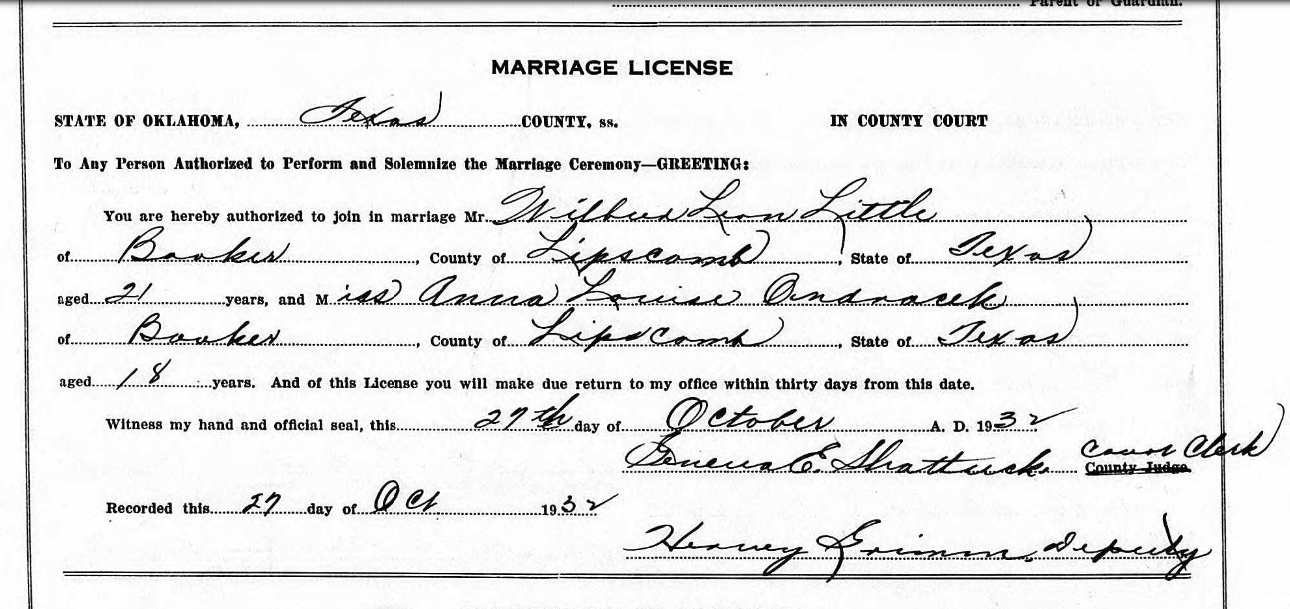 Parent or Guardian.
MARRIAGE LICENSE
STATE OF OKLAHOMA, Texas COUNTY, ss. IN COUNTY COURT
To Any Person Authorized to Perform and Solemnize the Marriage Ceremony—GREETING:
You are hereby authorized to join in marriage Mr. Wilbur Leon Little
of Booker, County of Lipscomb, State of Texas
aged 21 years, and Miss Anna Louise Ondracek
of Booker, County of Lipscomb, State of Texas
aged 18 years. And of this License you will make due return to my office within thirty days from this date.
Witness my hand and official seal, this 27th day of October A. D. 1932
Geneva E. Shattuck Court Clerk
County Judge
Recorded this 27 day of Oct 1932
Harvey Grimm, Deputy